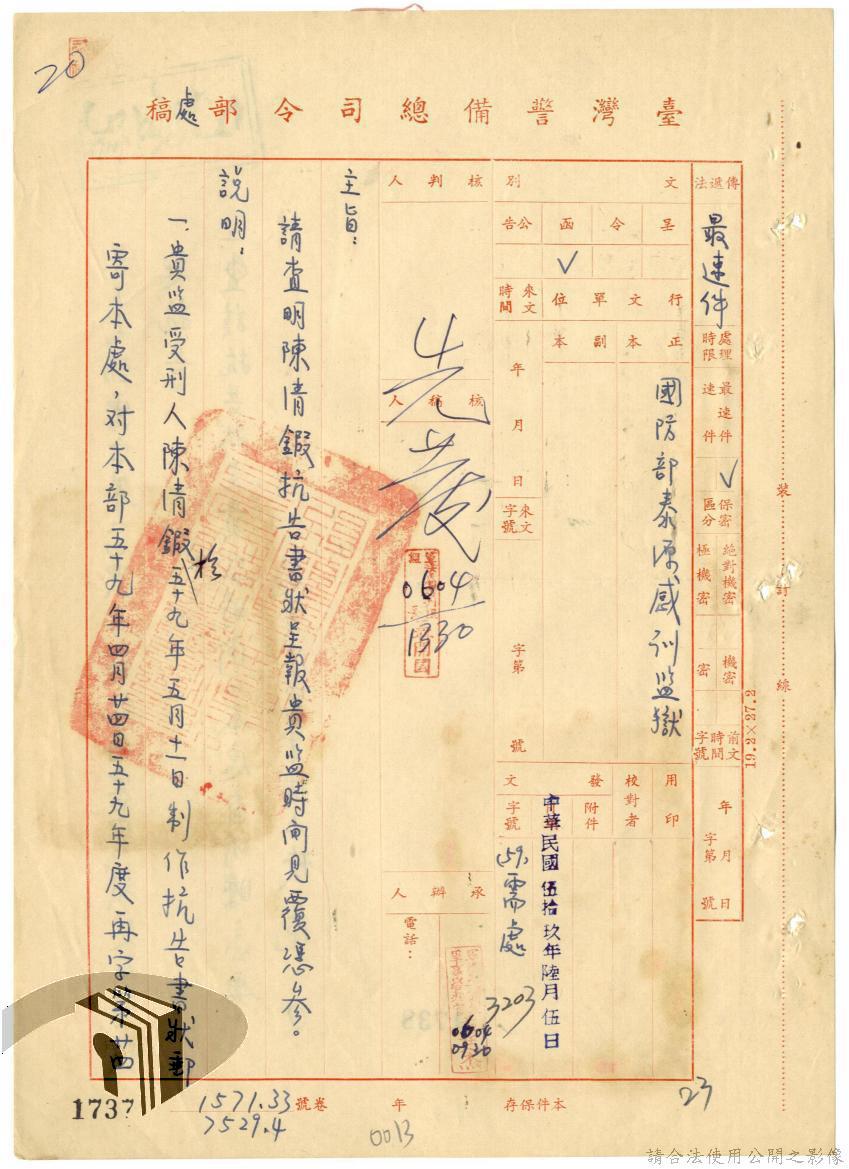 20
臺灣警備總司令部處稿
傳遞法
最速件
處理時限
最速件
速件
✓
保密區分
絕對機密
極機密
機密
密
前文時間字號
年月日
字第號
文別
呈
令
函
公告
✓
行文單位
正本
副本
國防部泰源感訓監獄
來文時間
年月日
來文字號
字第號
用印
校對者
發文
附件
字號
中華民國伍拾玖年陸月伍日
(59)需處
3203
核判人
核稿人
先發
0604
1330
承辦人
電話：
0604
0930
主旨：
請查明陳清鍛抗告書狀呈報貴監時間見覆憑參。
說明：
一、貴監受刑人陳清鍛於五十九年五月十一日制作抗告書狀郵
寄本處，对本部五十九年四月廿四日五十九年度再字第廿四
裝
訂
線
19.2×27.2
1737
1571.33
7529.4
卷號
年
本件保存
0013
23
請合法使用公開之影像